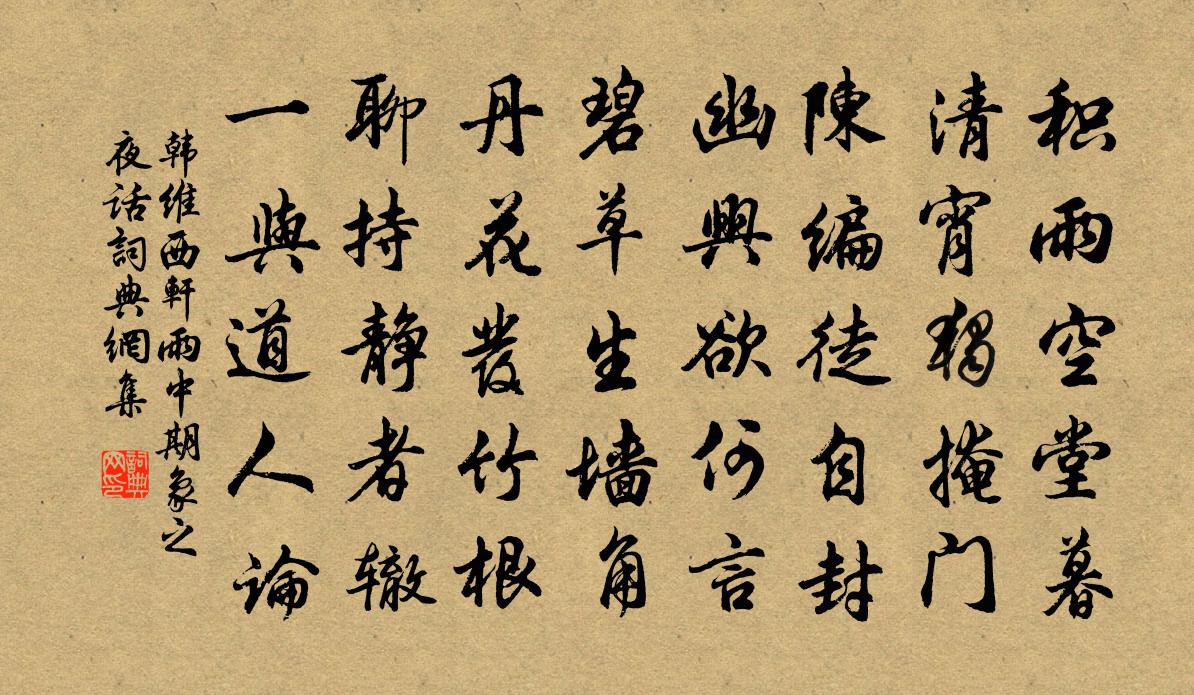 积雨空堂暮
清宵独掩门
陳编徒自封
幽興欲何言
碧草生墙角
丹花發竹根
聊持静者辙
一與道人論
韩维西軒雨中期象之
夜话詞典網集
詞典网印